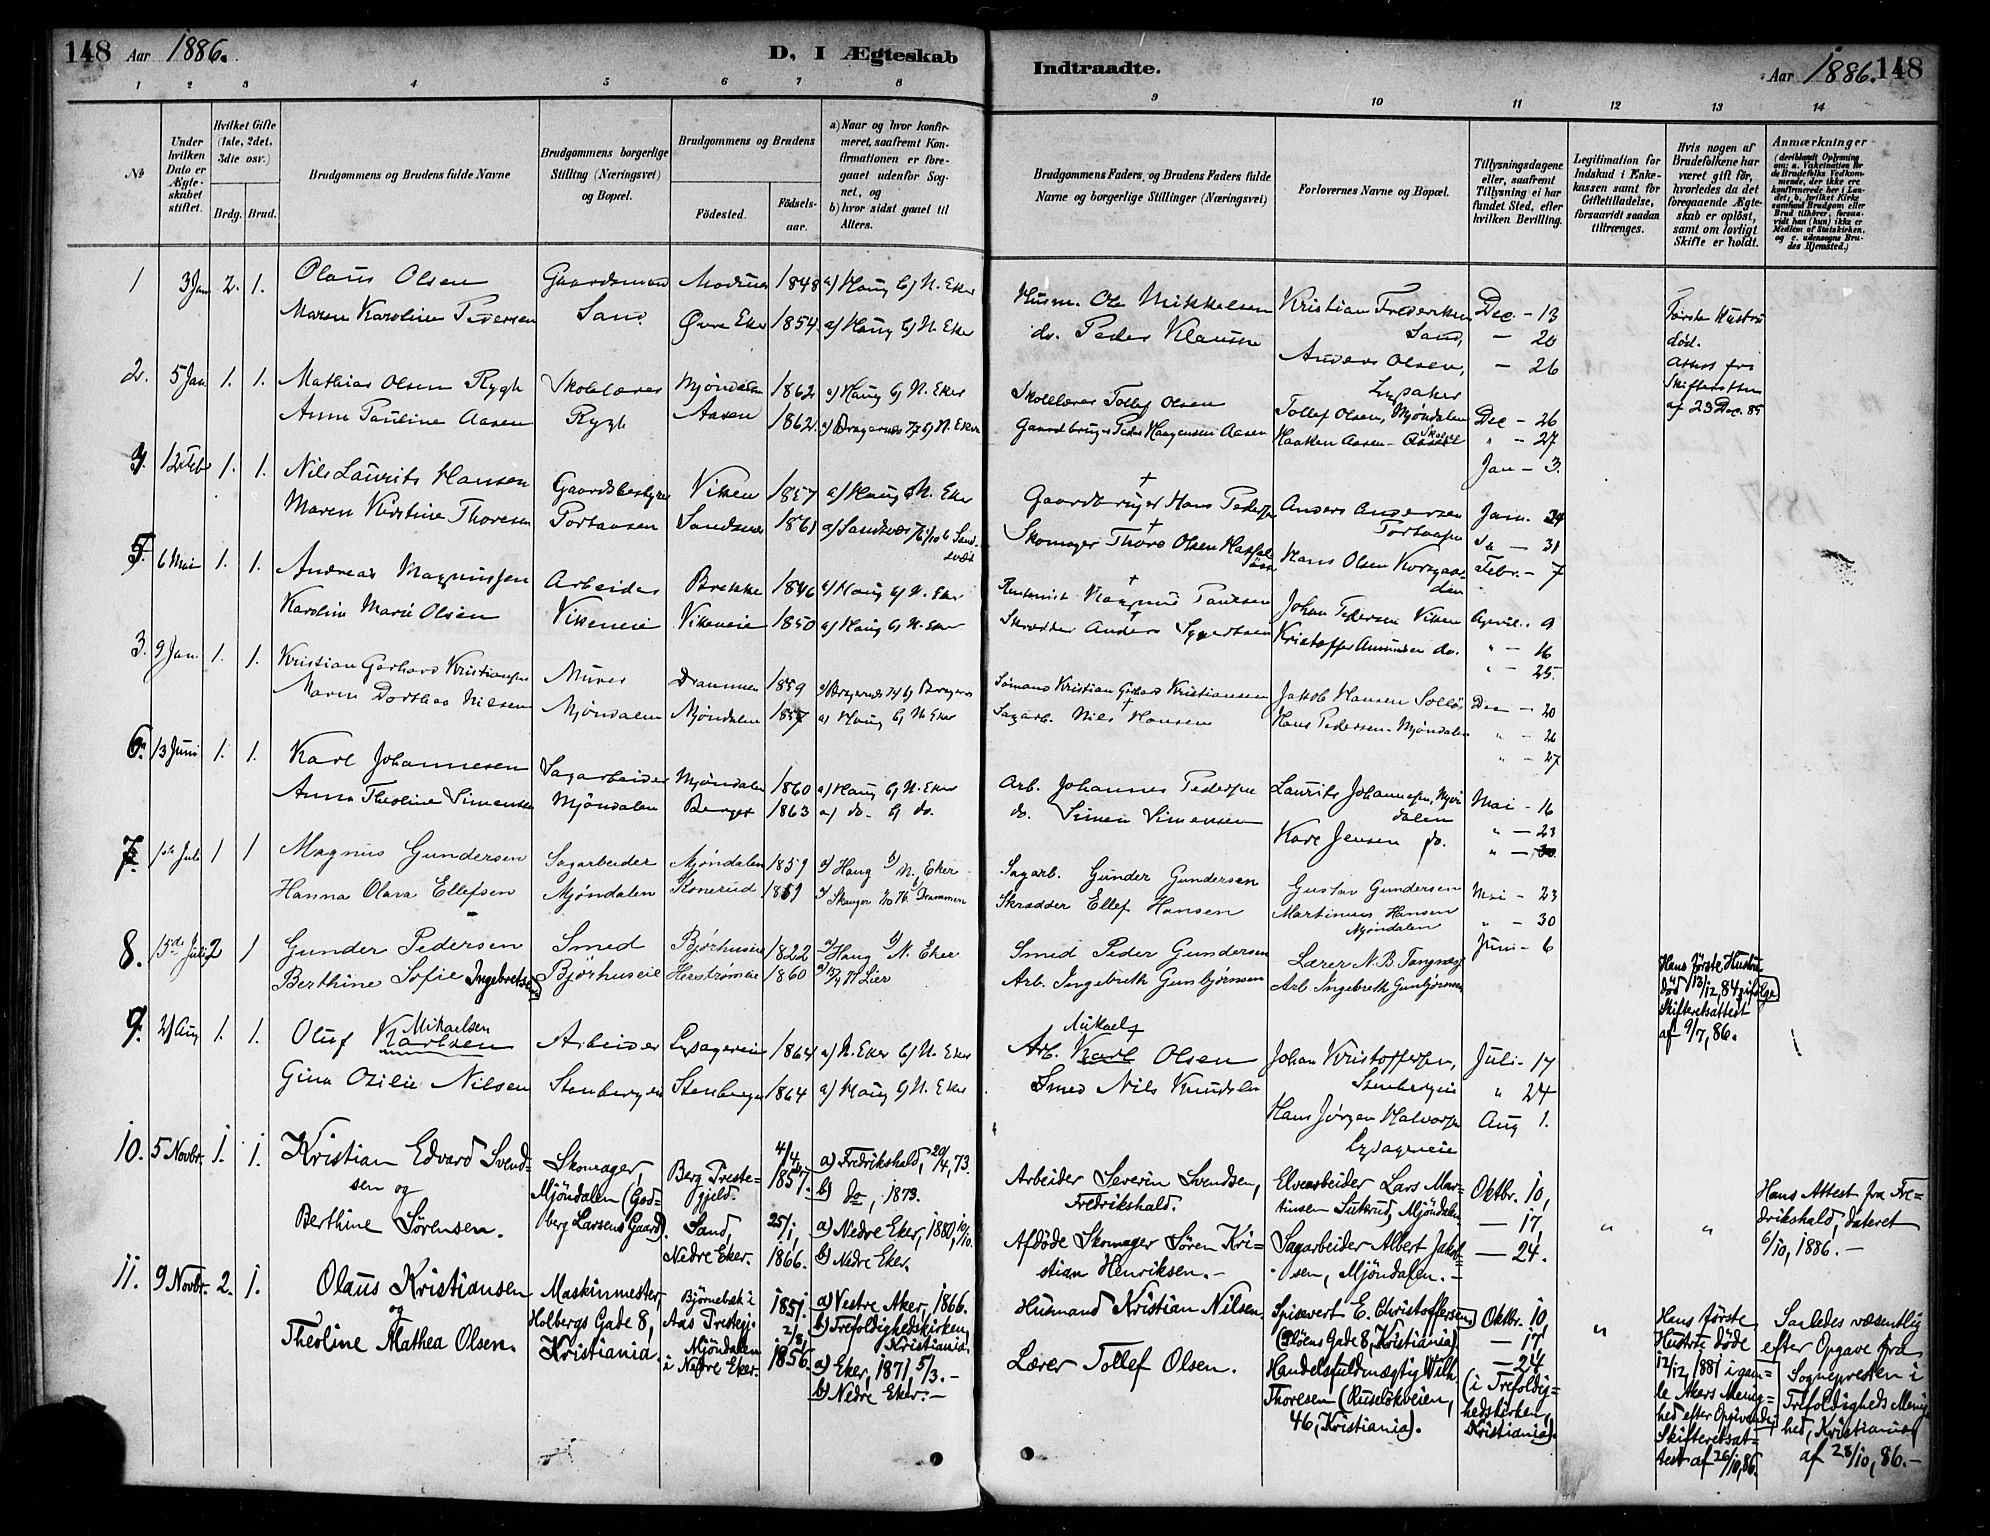 148 Aar 1886. D, I Ægteskab
Indtraadte. Aar 1886. 148
1 2 3 4 5 6 7 8
9 10 11 12 13 14
№
Under hvilken Dato er Ægteskabet stiftet.
Hvilket Gifte (1ste, 2det, 3die osv.)
Brdg. Brud.
Brudgommens og Brudens fulde Navne
Brudgommens borgerlige Stilling (Næringsvei) og Bopæl.
Brudgommens og Brudens
Födested. Födselsaar.
a) Naar og hvor konfirmeret, saafremt Konfirmationen er foregaaet udenfor Sognet, og
b) hvor sidst gaaet til Alters.
Brudgommens Faders, og Brudens Faders fulde Navne og borgerlige Stillinger (Næringsvei)
Forlovernes Navne og Bopæl.
Tillysningsdagene eller, saafremt Tillysning ei har fundet Sted, efter hvilken Bevilling.
Legitimation for Indskud i Enkekassen samt for Giftetilladelse, forsaavidt saadan tiltrænges.
Hvis nogen af Brudefolkene har været gift för, hvorledes da det foregaaende Ægteskab er oplöst, samt om lovligt Skifte er holdt.
Anmærkninger
(deriblandt Oplysning om: a. Vakcination for de Brudefolks Vedkommende, der ikke ere konfirmerede her i Landet; b. hvilket Kirkesamfund Brudgom eller Brud tilhörer, forsaavidt han (hun) ikke er Medlem af Statskirken, og c. udensogns Brudes Hjemsted.)
1 3 Jan 2. 1. Olaus Olsen Gaardmand Modum 1848 a) Haug b) N. Eker
Maren Karoline Pedersen Sand. Øvre Eker 1854 a) Haug b) N. Eker
Husm. Ole Mikkelsen Kristian Frederiksen Sand, Dec. - 13
do. Peder Klausen Anders Olsen, - 20
- 26
Første Hustru död. Attest fra Skifteretten af 23 Dec. 85
2. 5 Jan 1. 1. Mathias Olsen Rygh Skolelærer Mjøndalen 1862 a) Haug b) N. Eker
Anna Pauline Aasen Rygh Aasen 1862. a) Bragernes 77 b) N. Eker
Skolelærer Tollef Olsen Tollef Olsen, Mjøndalen Dec - 26
Gaardbruger Peder Haagensen Aasen Haaken Aasen - " - 27
Jan - 3.
4. 12 Febr 1. 1. Nils Laurits Hansen Gaardsbestyrer Viken 1857 a) Haug b) N. Eker
Maren Kirstine Thoresen Portaasen Sandsvær 1861 a) Sandsvær b Sandsvær
Gaardbruger Hans Pedersen Anders Andersen Portaasen Jan. 24
Skomager Thore Olsen Hans Olsen Korsgaarden - 31
Febr. - 7
5. 6 Mai 1. 1. Andreas Magnussen Arbeider Brekke 1846 a) Haug b) N. Eker
Karoline Marie Olsen Vikeneie Vikeneie 1850 a) Haug b) N. Eker
Magnus Paulsen Johan Pedersen Viken April. 9
Skrædder Anders Kristoffer Amundsen do. " - 16
" - 25.
3. 9 Jan. 1. 1. Kristian Gerhard Kristiansen Murer Drammen 1859 a) Bragernes 74 b) Bragernes
Maren Dorthea Nilsen Mjøndalen Mjøndalen 1857 a) Haug b) N. Eker
Sømand Kristian Gerhard Kristiansen Jakob Hansen Dec - 20
Sagarb. Nils Hansen Hans Pedersen - Mjøndalen " - 26
" - 27
6. 13 Juni 1. 1. Karl Johannesen Sagarbeider Mjøndalen 1860 a) Haug b) N. Eker
Anna Theoline Simensen Mjøndalen Berger 1863 a) do. b) do.
Arb. Johannes Pedersen Laurits Johannesen, Mjøndalen Mai - 16
do. Simen Simensen Karl Jensen do. " - 23
" - 30
7. Juli 1 1 Magnus Gundersen Sagarbeider Mjøndalen 1859 a) Haug b) N. Eker
Hanna Olava Ellefsen Mjøndalen Konerud 1859 a) Skauger b) Drammen
Sagarb. Gunder Gundersen Gustav Gundersen Mai - 23
Skrædder Ellef Hansen Martinius Hansen Mjøndalen " - 30
Juni - 6
8. 15de Juli 2 1 Gunder Pedersen Smed Bjørhuseie 1822 a) Haug b) N. Eker
Berthine Sofie Ingebretsen Bjørhuseie 1860 Lier
Smed Peder Gundersen Lærer N. B. Tangnæs
Arb. Ingebreth Gunbjörnsen Arb Ingebreth Gunbjörnsen
Hans første Hustru död 13/12, 84, ifølge Skifteretsattest af 9/7, 86.
9. 21 Aug 1. 1. Oluf Mikaelsen Karlsen Arbeider 1864 a) N. Eker b) N. Eker
Gina Otilie Nilsen Stenbergeie Stenbergeie 1864 a) Haug b) N. Eker
Arb. Mikael Karl Olsen Johan Kristoffersen, Stenbergeie Juli - 17
Smed Nils Knudsen Hans Jørgen Halvorsen " 24
Aug 1.
10. 5 Novbr. 1. 1. Kristian Edvard Svendsen og Skomager, Mjöndalen (Godberg Larsens Gaard). Berg Prestegjeld. 4/4, 1857. a) Fredrikshald, 20/4, 73.
b) do, 1873.
Berthine Sörensen. Sand, Nedre Eker. 25/1, 1866. a) Nedre Eker, 1880, 10/10.
b) Nedre Eker.
Arbeider Severin Svendsen, Fredrikshald. Elvearbeider Lars Martinsen Sütrud, Mjöndalen Oktbr. 10,
Afdöde Skomager Sören Kristian Henriksen. - Sagarbeider Albert Jakobsen, Mjöndalen. - - 17,
- 24.
" "
Hans Attest fra Fredrikshald, dateret 6/10, 1886. -
11. 9 Novbr. 2. 1. Olaus Kristiansen og Maskinmester, Holbergs Gade 8, Kristiania. Björnebæk i Aas Prestegj. 1851. a) Vestre Aker, 1866.
b) Trefoldighedskirken, Kristiania.
Theoline Mathea Olsen. Mjöndalen i Nedre Eker. 2/8, 1856. a) Eker, 1871, 5/3. -
b) Nedre Eker. -
Husmand Kristian Nilsen. Spisevert E. Christoffersen (Gade 8, Kristiania). Oktbr. 10,
Lærer Tollef Olsen. Handelsfuldmægtig Wilh. Thoresen (Ruselökveien, 46, Kristiania). - 17,
- 24
(i Trefoldighedskirken, Kristiania).
"
Hans første Hustru döde 12/12, 1881 i gamle Akers Menighed efter Opgivende; Skifteretsattest af 26/10, 86.
Saaledes væsentlig efter Opgave fra Sognepresten i Trefoldigheds Menighed, Kristiania, af 28/10, 86. -